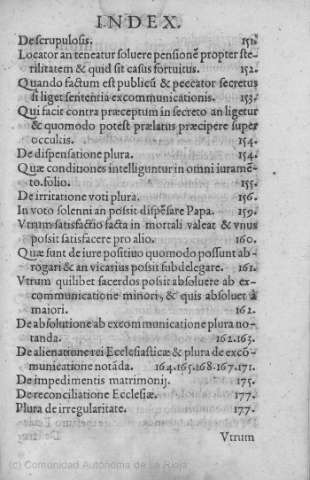 INDEX.
De scrupulosis. 151.
Locator an teneatur soluere pensionē propter ste-
rilitatem & quid sit casus fortuitus. 152.
Quando factum est publicū & peccator secretus
si liget sententia excommunicationis. 153.
Qui facit contra præceptum in secreto an ligetur
& quomodo potest prælatus præcipere super
occultis. 154.
De dispensatione plura. 154.
Quæ conditiones intelliguntur in omni iuramē-
to. folio. 155.
De irritatione voti plura. 156.
In voto solenni an possit dispēsare Papa. 159.
Vtrum satisfactio facta in mortali valeat & vnus
possit satisfacere pro alio. 160.
Quæ sunt de iure positiuo quomodo possunt ab-
rogari & an vicarius possit subdelegare. 161.
Vtrum quilibet sacerdos possit absoluere ab ex-
communicatione minori, & quis absoluet à
maiori. 162.
De absolutione ab excommunicatione plura no-
tanda. 162.163.
De alienatione rei Ecclesiasticæ & plura de excō-
municatione notāda. 164.165.168.167.171.
De impedimentis matrimonij. 175.
De reconciliatione Ecclesiæ. 177.
Plura de irregularitate. 177.
Vtrum
(c) Comunidad Autónoma de La Rioja